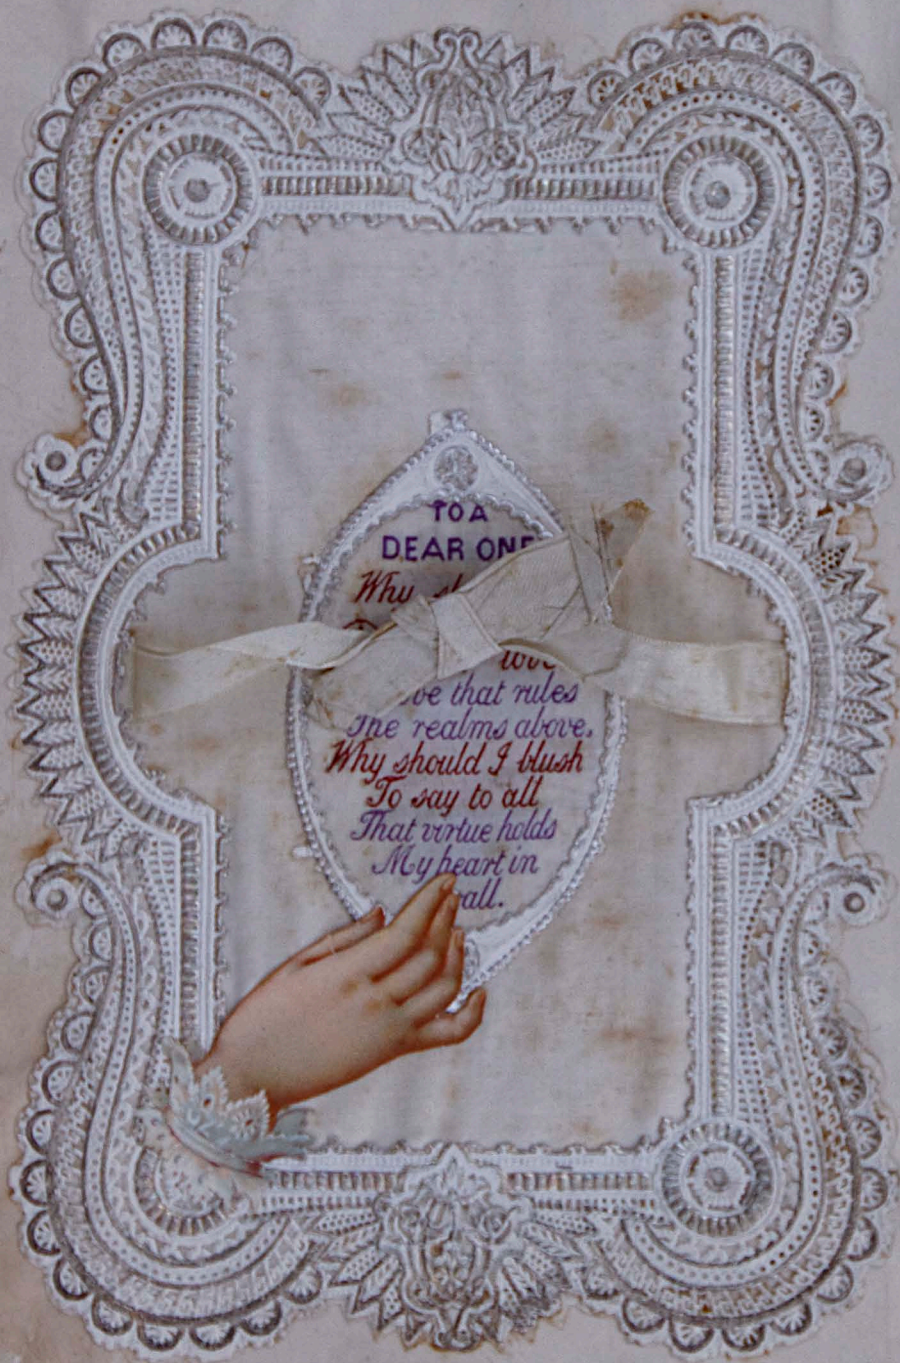 TO A
DEAR ONE
Why
love
that rules
The realms above.
Why should I blush
To say to all
That virtue holds
My heart in